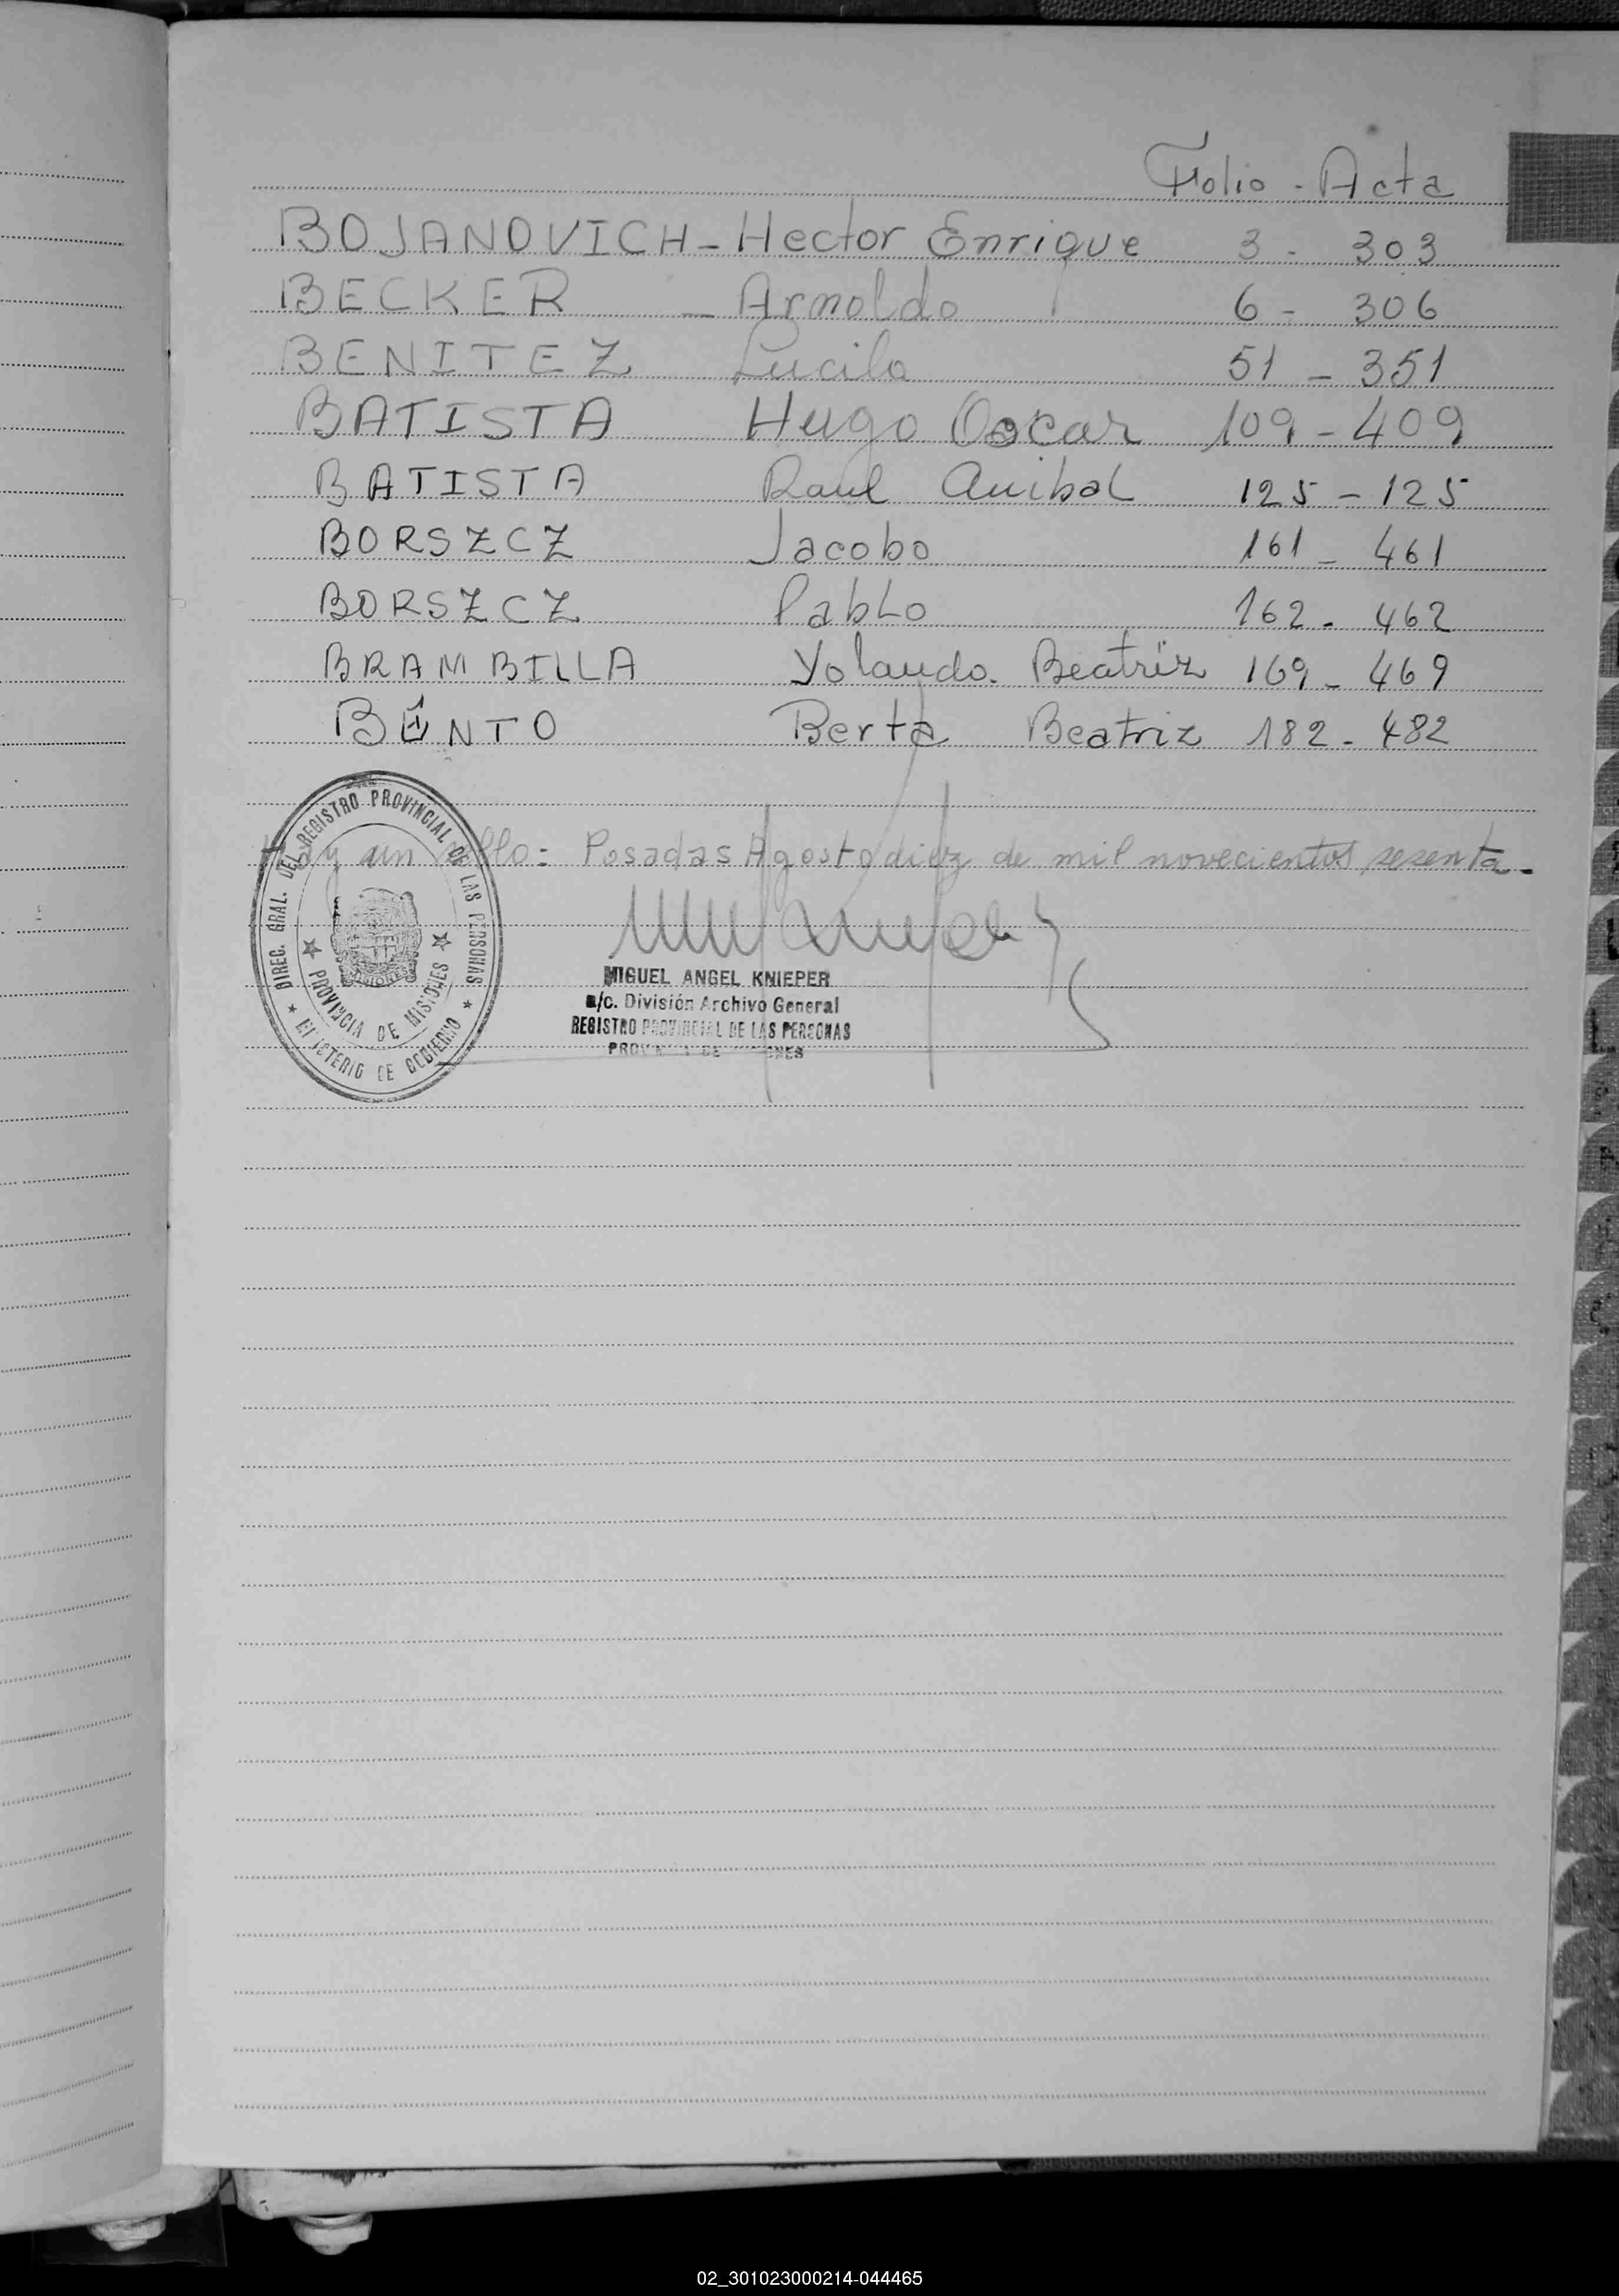 Folio - Acta
BOJANOVICH - Hector Enrique 3 - 303
BECKER - Arnoldo 6 - 306
BENITEZ Lucila 51 - 351
BATISTA Hugo Oscar 109 - 409
BATISTA Raul Anibal 125 - 125
BORSZCZ Jacobo 161 - 461
BORSZCZ Pablo 162 - 462
BRAMBILLA Yolanda Beatriz 169 - 469
BENTO Berta Beatriz 182 - 482
y un Posadas Agosto diez de mil novecientos sesenta.-
DIREC. GRAL. DEL REGISTRO PROVINCIAL DE LAS PERSONAS
MINISTERIO DE GOBIERNO
PROVINCIA DE MISIONES
MIGUEL ANGEL KNIEPER
a/c. División Archivo General
REGISTRO PROVINCIAL DE LAS PERSONAS
PROVINCIA DE MISIONES
02_301023000214-044465